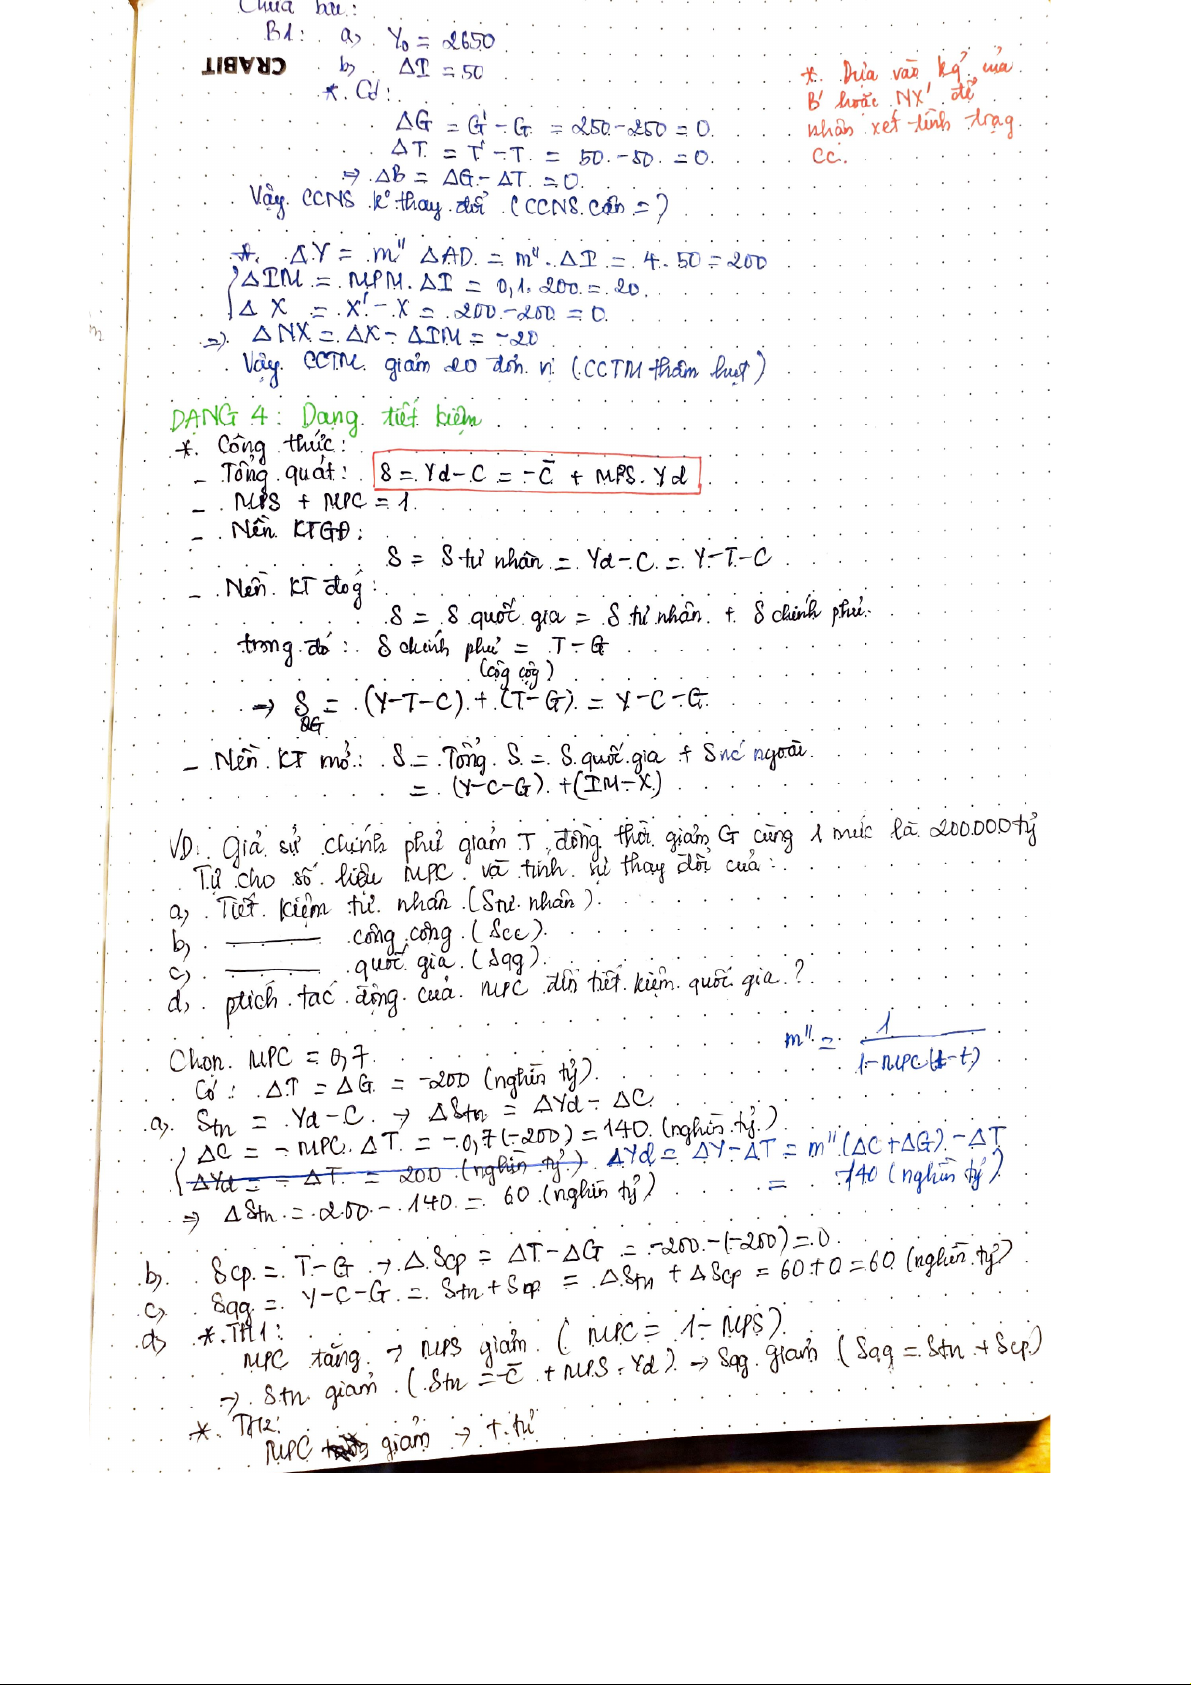 Chữa btc:
B1: a, Y₀ = 2650
CRABIT
b, ΔI = 50
*. Có:
ΔG = G' - G = 250 - 250 = 0.
ΔT = T' - T = 50 - 50 = 0.
=> ΔB = ΔG - ΔT = 0.
Vậy CCNS k° thay đổi (CCNS cân =)
*. Dựa vào kq̉ của
B' hoặc NX' để
nhận xét tình trạg
CC.
*. ΔY = m" ΔAD = m". ΔI = 4. 50 = 200
ΔIM = MPM. ΔI = 0,1. 200 = 20.
ΔX = X' - X = 200 - 200 = 0.
=> ΔNX = ΔX - ΔIM = -20
Vậy CCTM giảm 20 đơn vị (CCTM thâm hụt)
DẠNG 4: Dạng tiết kiệm
*. Công thức:
- Tổng quát: S = Yd - C = -C̄ + MPS. Yd
- MPS + MPC = 1
- Nền KTGĐ:
S = S tư nhân = Yd - C = Y - T - C
- Nền KT đóg:
S = S quốc gia = S tư nhân + S chính phủ.
trong đó: S chính phủ = T - G
(côg cộg)
→ S QG = (Y-T-C) + (T-G) = Y-C-G.
- Nền KT mở: S = Tổng S = S quốc gia + S nc ngoài
= (Y-C-G) + (IM-X)
VD: Giả sử chính phủ giảm T, đồng thời giảm G cùng 1 mức là 200.000 tỷ
Tự cho số liệu MPC và tính sự thay đổi của:
a, Tiết kiệm tư nhân (Stư nhân)
b, ——— công cộng (Scc)
c, ——— quốc gia (Sqg)
d, ptích tác động của MPC đến tiết kiệm quốc gia?
m" = 1 / 1-MPC(1-t)
Chọn MPC = 0,7
Có: ΔT = ΔG = -200 (nghìn tỷ)
a, Stn = Yd - C → ΔStn = ΔYd - ΔC
ΔC = - MPC. ΔT = -0,7(-200) = 140 (nghìn tỷ)
ΔYd = - ΔT = 200 (nghìn tỷ) ΔYd = ΔY - ΔT = m"(ΔC + ΔG) - ΔT
= 140 (nghìn tỷ)
=> ΔStn = 200 - 140 = 60 (nghìn tỷ)
b, Scp = T - G → ΔScp = ΔT - ΔG = -200 - (-200) = 0
c, Sqg = Y-C-G = Stn + Scp = ΔStn + ΔScp = 60 + 0 = 60 (nghìn tỷ)
d, *. TH1:
MPC tăng → MPS giảm (MPC = 1 - MPS)
→ Stn giảm (Stn = -C̄ + MPS. Yd) → Sqg giảm (Sqg = Stn + Scp)
*. TH2:
MPC giảm → T.tự